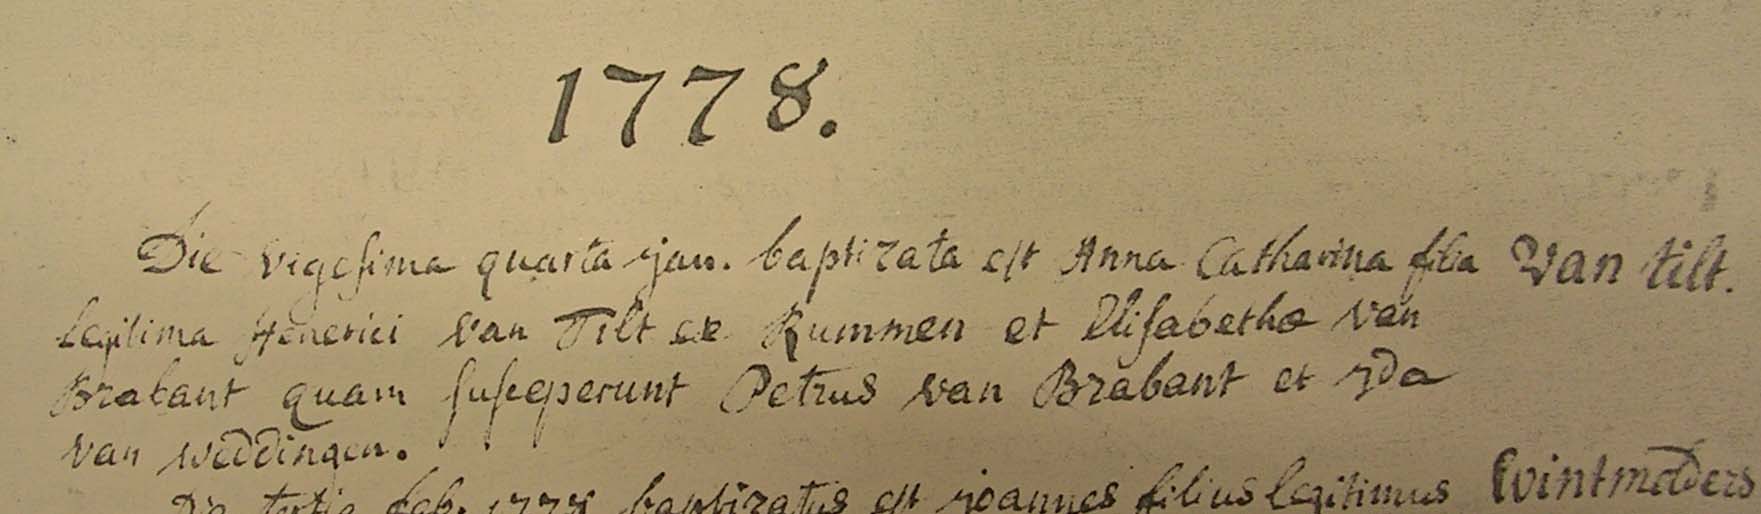 1778.
Die vigesima quarta jan. baptizata est Anna Catharina filia van tilt.
legitima Henerici van Tilt ex Rummen et Elisabethæ van
Brabant quam susceperunt Petrus van Brabant et yda
van weddingen.
Die tertia feb. 1778 baptizatus est joannes filius legitimus Wintmolders